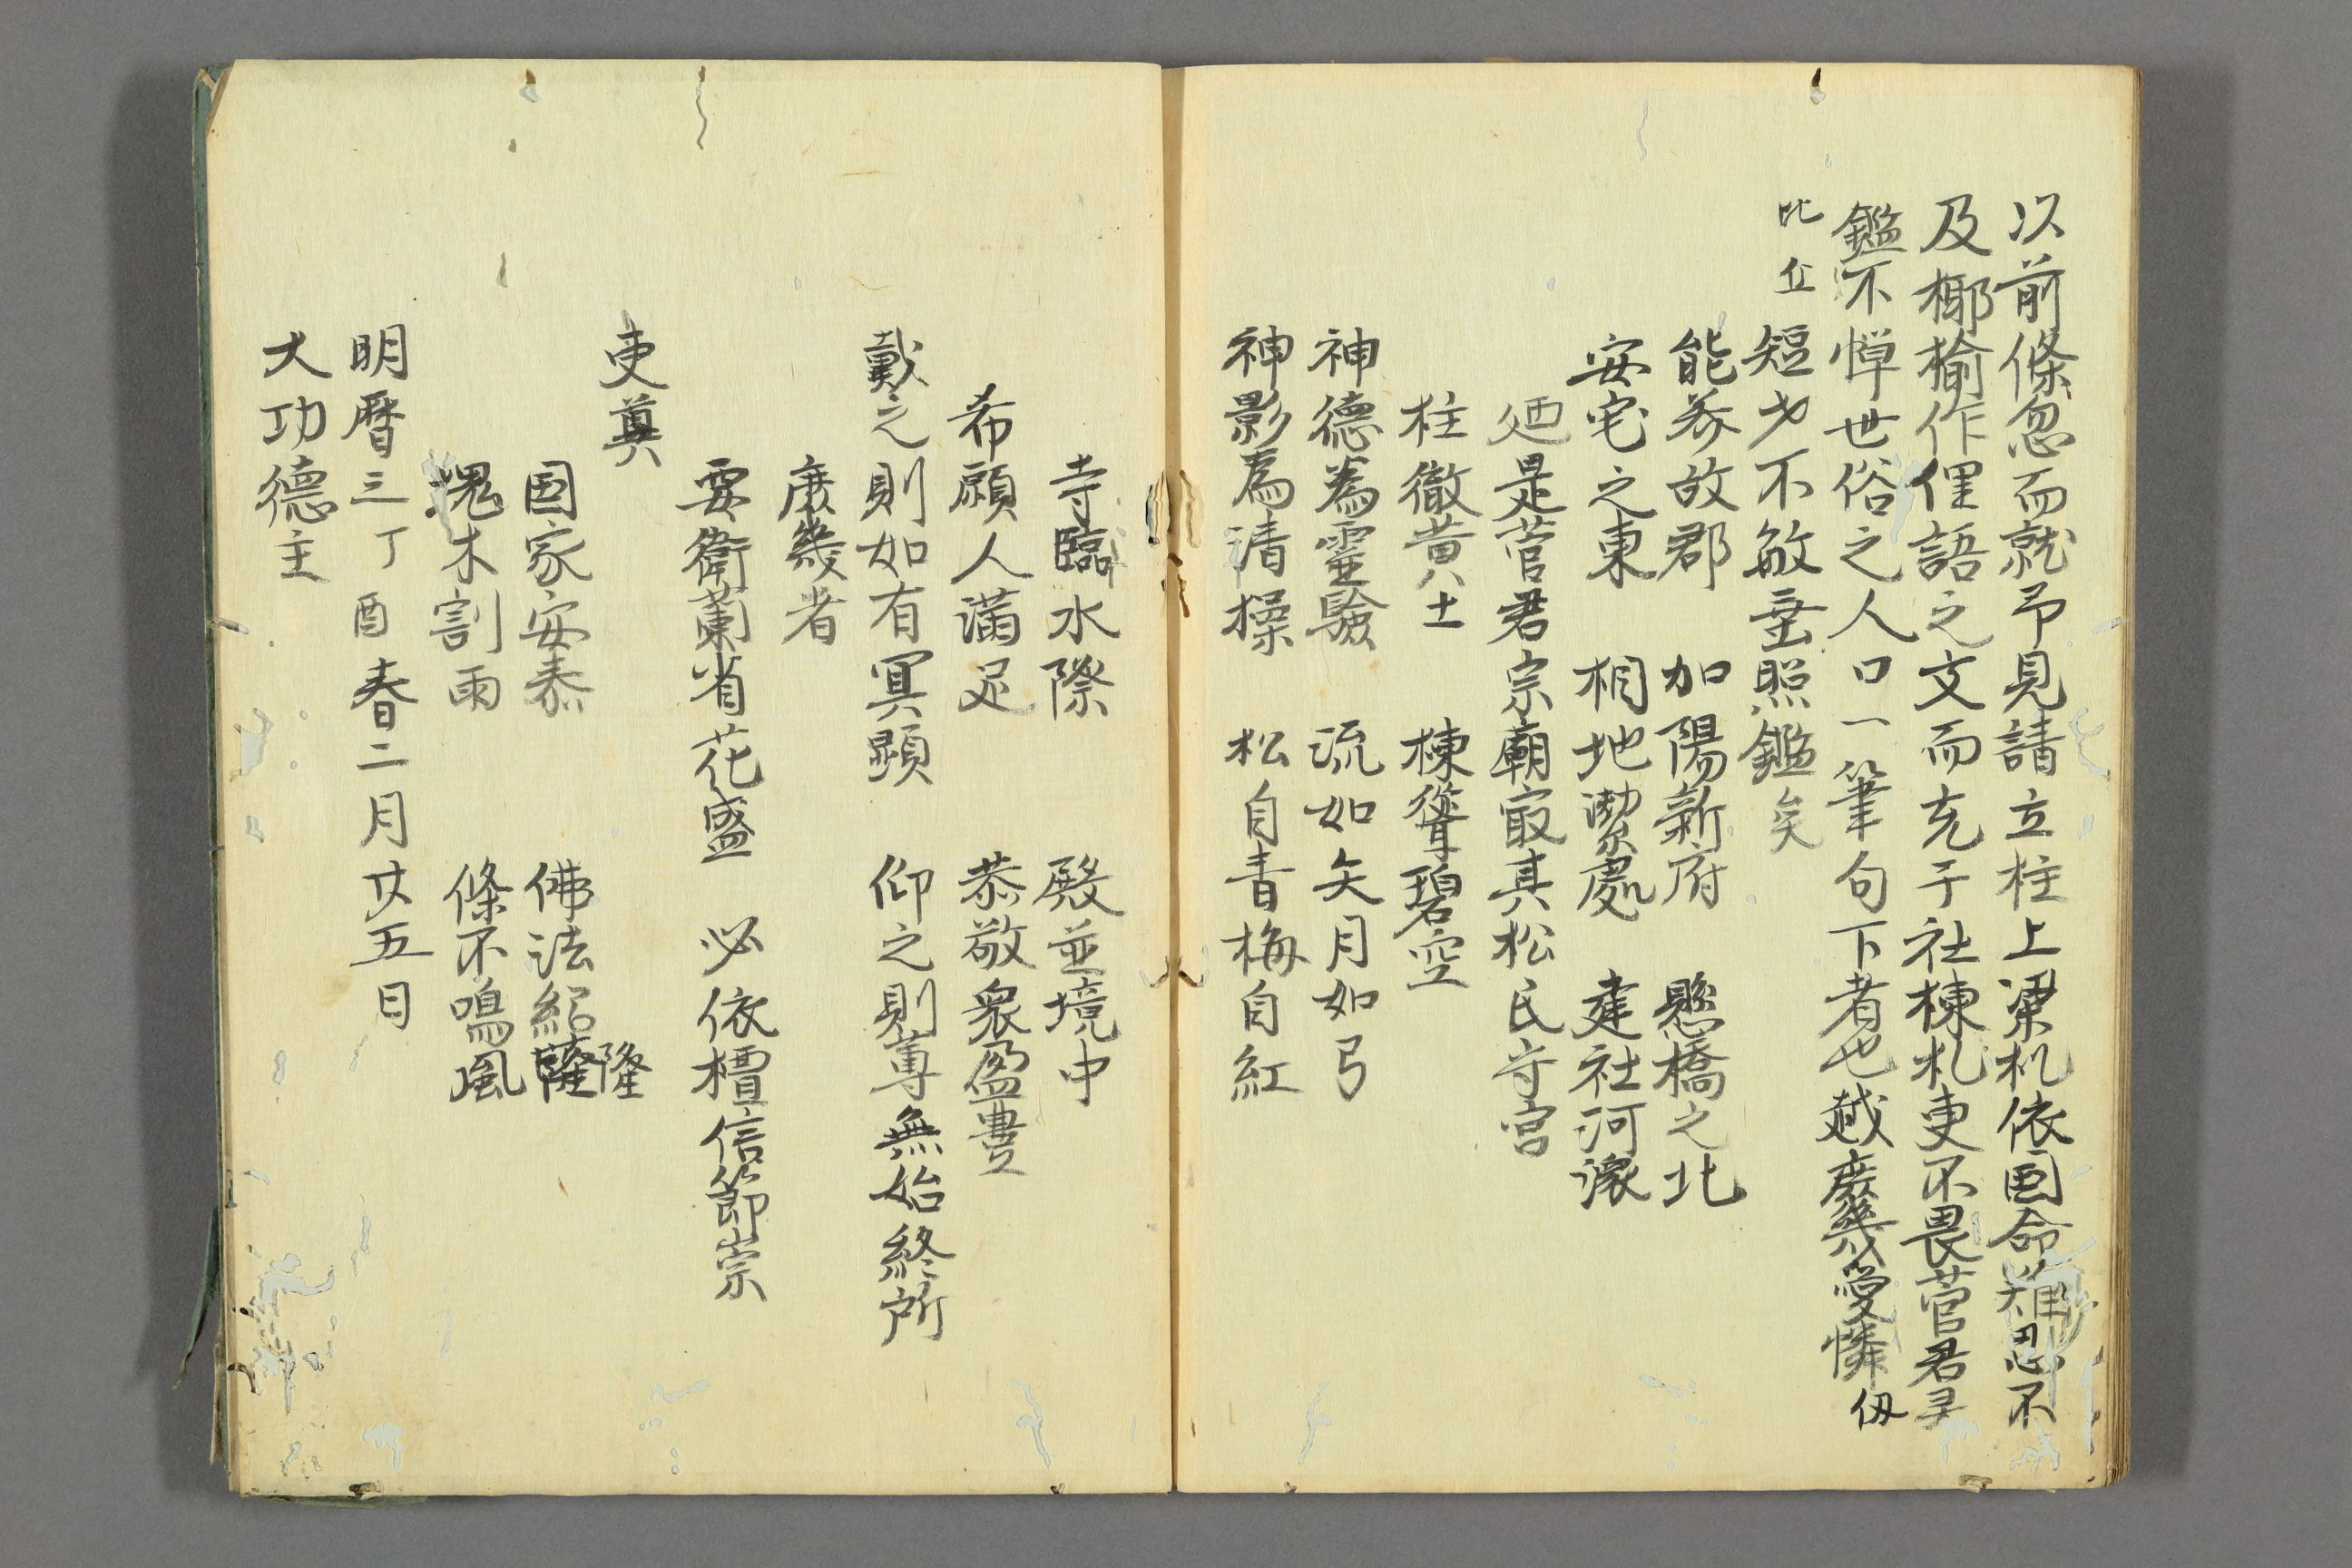 以前條忽而就予見請立柱上梁札依国命難忍不
及椰榆作俚語之文而充于社棟札吏不畏菅君灵
鑑不憚世俗之人口一筆句下者也越庶幾愛憐仅
比丘短才不敏垂照鑑矣
能列故郡 加陽新府 懸橋之北
安宅之東 相地潔處 建社河濠
廼是菅君宗廟寂其松氏守宮
柱徹黄土 棟聳碧空
神德為靈驗 流如矢月如弓
神影為清操 松自青梅自紅
寺臨水際 殿並境中
希願人満足 恭敬衆盈豊
戴之則如有冥顕 仰之則尊無始終所
庶幾者
要衛蘭省花盛 必依檀信節崇
吏奠
国家安泰 佛法紹隆
隆
塊木割雨 條不鳴風
明曆三丁酉春二月廿五日
大功德主